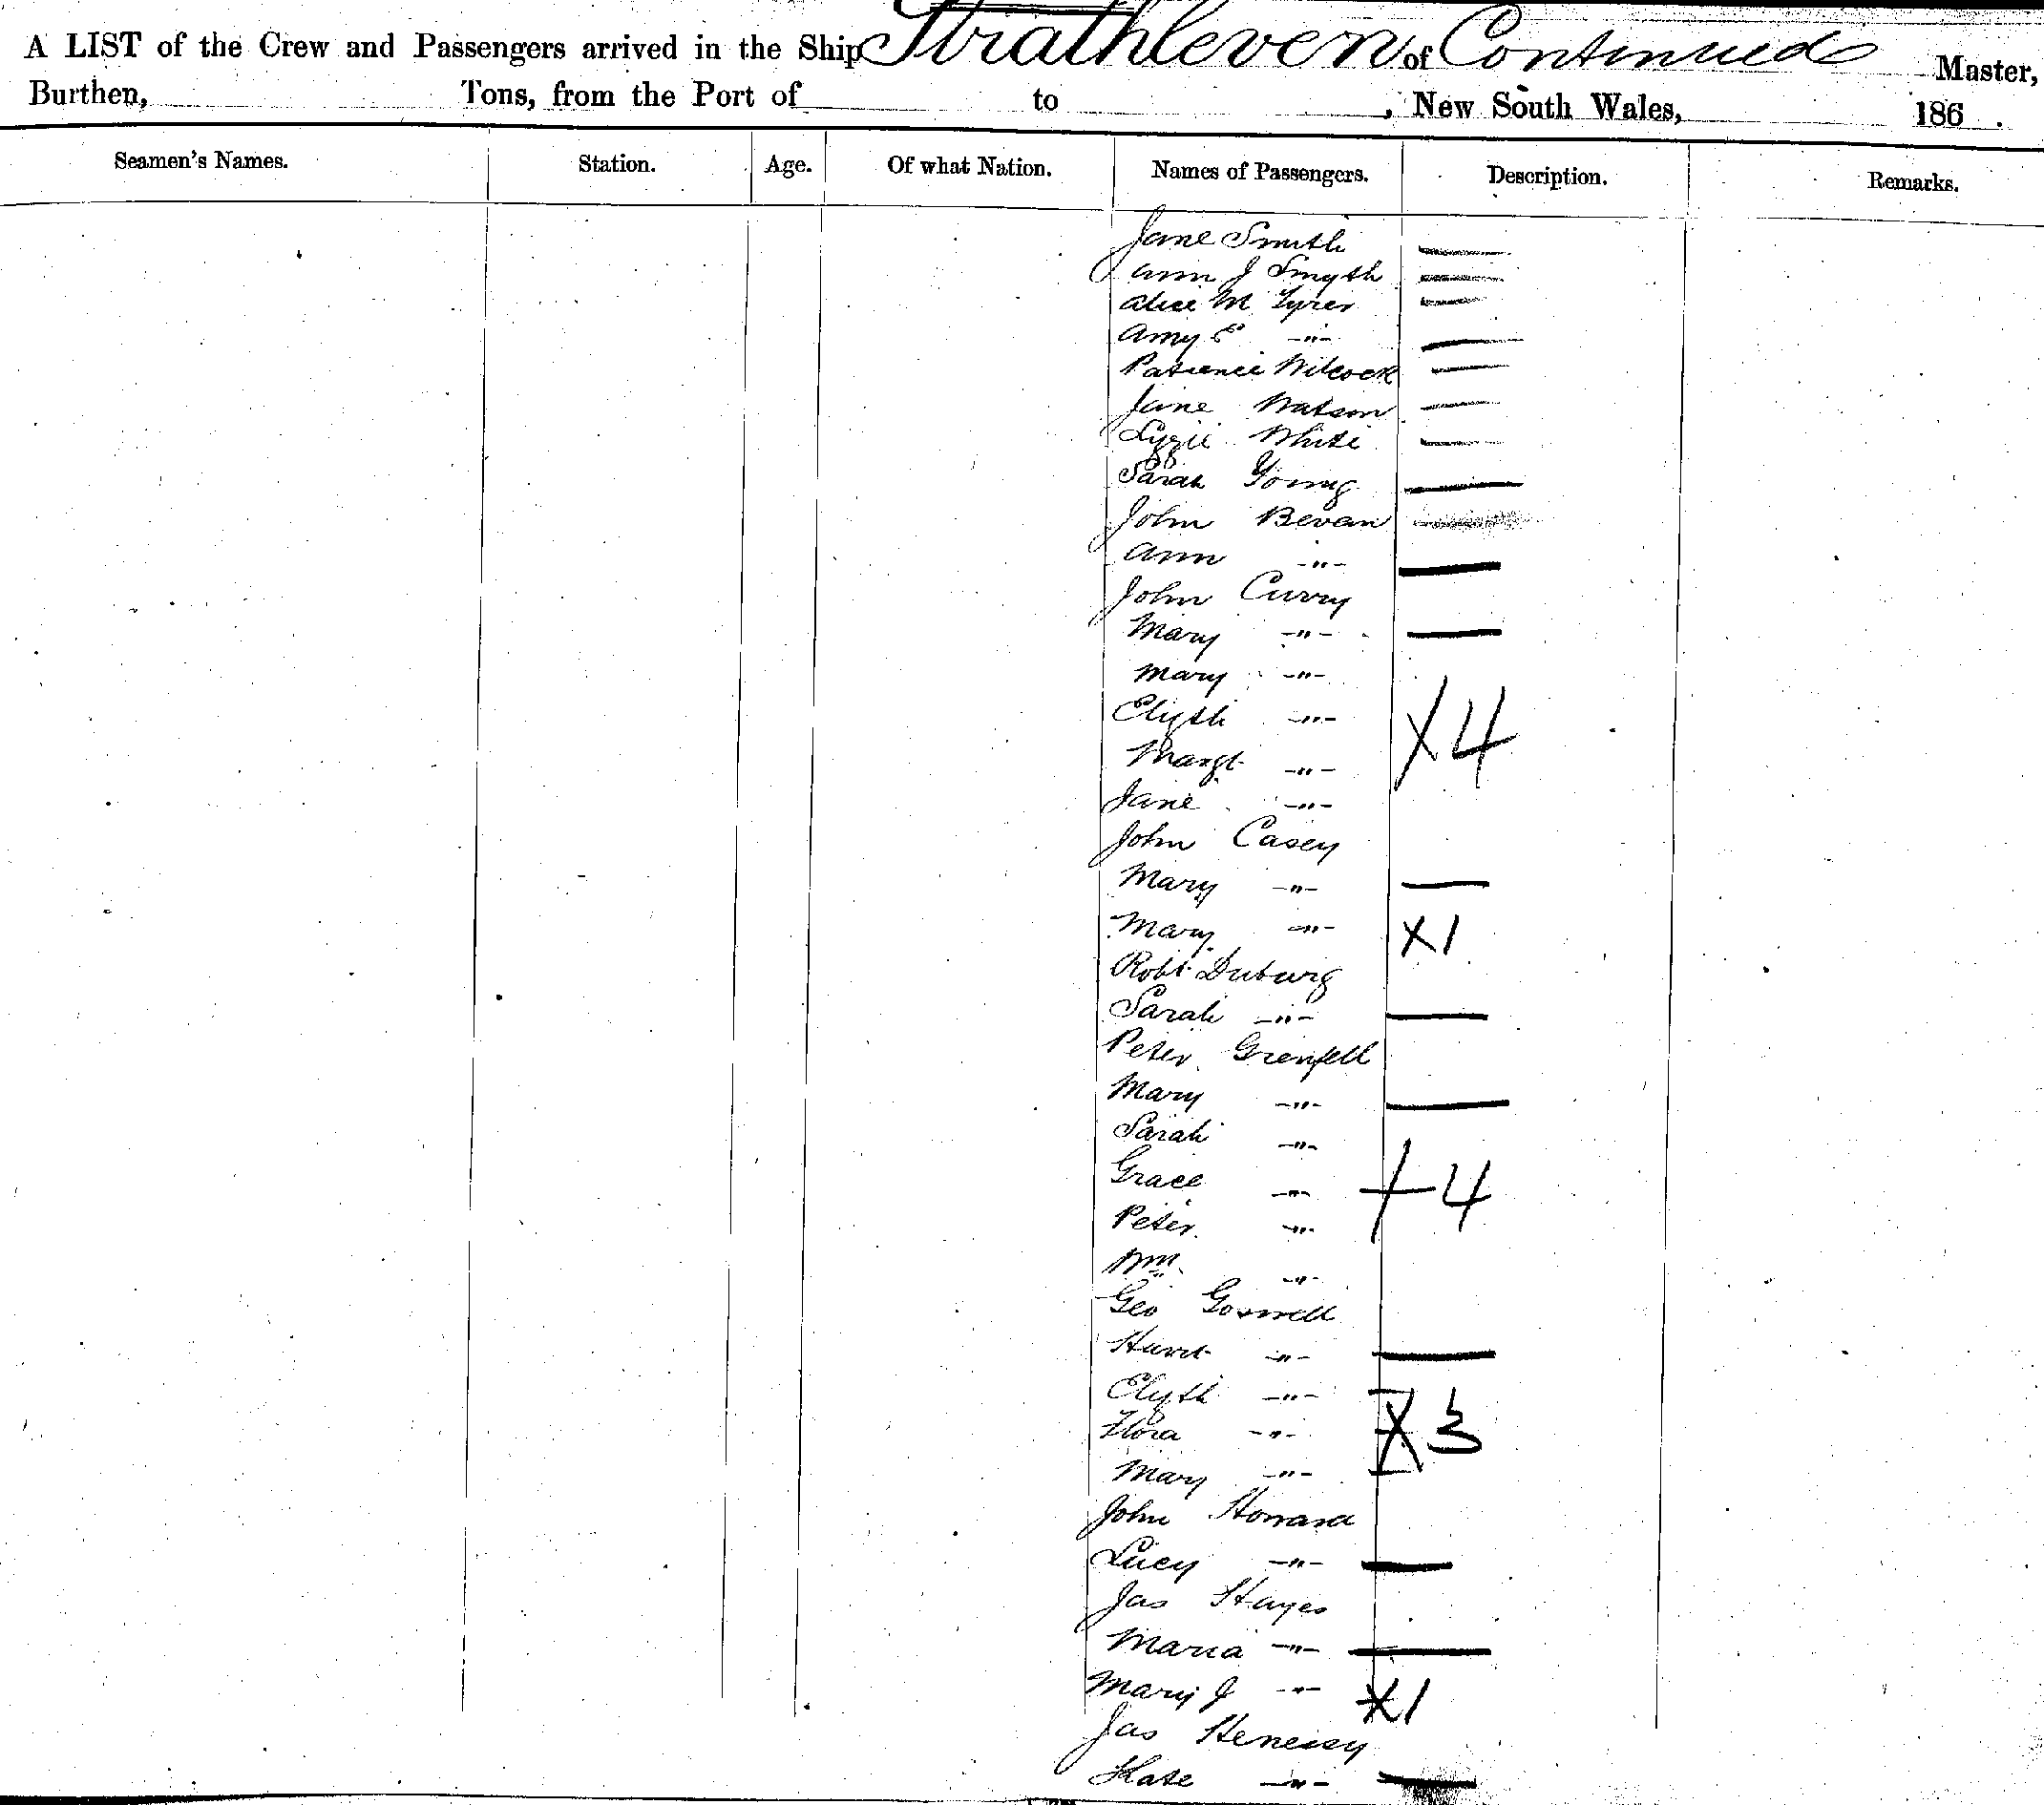 A LIST of the Crew and Passengers arrived in the Ship Strathleven of Continued Master,
Burthen, Tons, from the Port of to , New South Wales, 186 .
Seamen's Names. Station. Age. Of what Nation. Names of Passengers. Description. Remarks.
Jane Smith —
Ann J Smyth —
Alice M Tyrer —
Amy E -"- —
Patience Wilcock —
Jane Watson —
Lizzie White —
Sarah Young —
John Bevan —
Ann -"- —
John Curry
Mary -"- —
Mary -"-
Elizth -"- X4
Margt -"-
Jane -"-
John Casey
Mary -"- —
Mary -"- X1
Robt Duburg
Sarah -"- —
Peter Grenfell
Mary -"- —
Sarah -"-
Grace -"- +4
Peter -"-
Wm -"-
Geo Goswell
Harrt -"- —
Elizth -"-
Flora -"- X3
Mary -"-
John Howard
Lucy -"- —
Jas Hayes
Maria -"- —
Mary J -"- X1
Jas Henessy
Kate -"- —